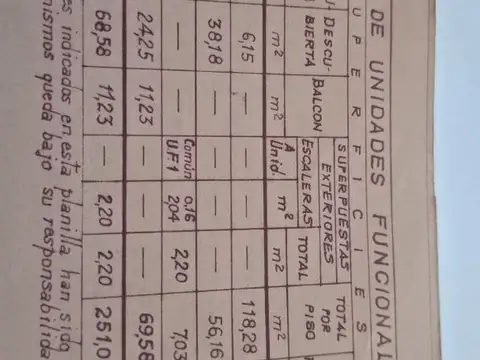 DE UNIDADES FUNCIONAL
UPERFICIES
DESCU-
BIERTA
BALCON
SUPERPUESTAS
EXTERIORES
ESCALERAS TOTAL
TOTAL
POR
PISO
m² m² A Unid. m² m² m²
6,15 — — — — 118,28
38,18 — — — — 56,16
— — Común 0,16
U.F.1 2,04 2,20 7,03
24,25 11,23 — — — 69,56
68,58 11,23 — 2,20 2,20 251,0
es indicados en esta planilla han sido
nismos queda bajo su responsabilida